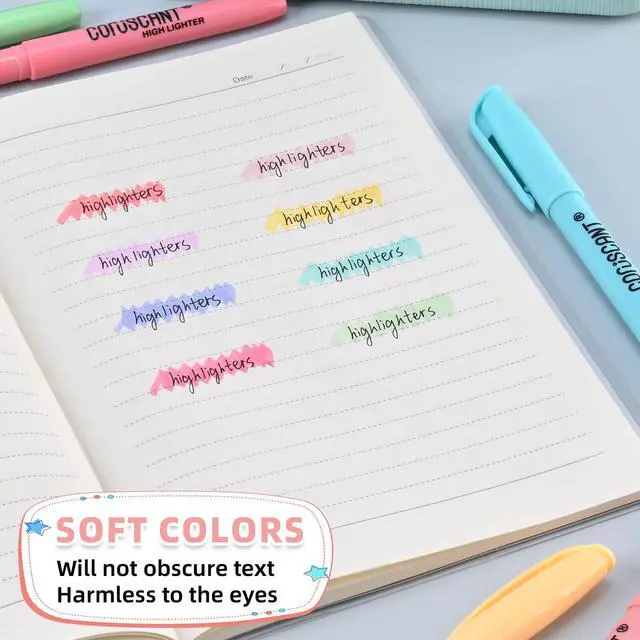 CORUSCANT®
HIGH LIGHTER
Date / /
highlighters
highlighters
highlighters
highlighters
highlighters
highlighters
highlighters
highlighters
CORUSCANT®
SOFT COLORS
Will not obscure text
Harmless to the eyes